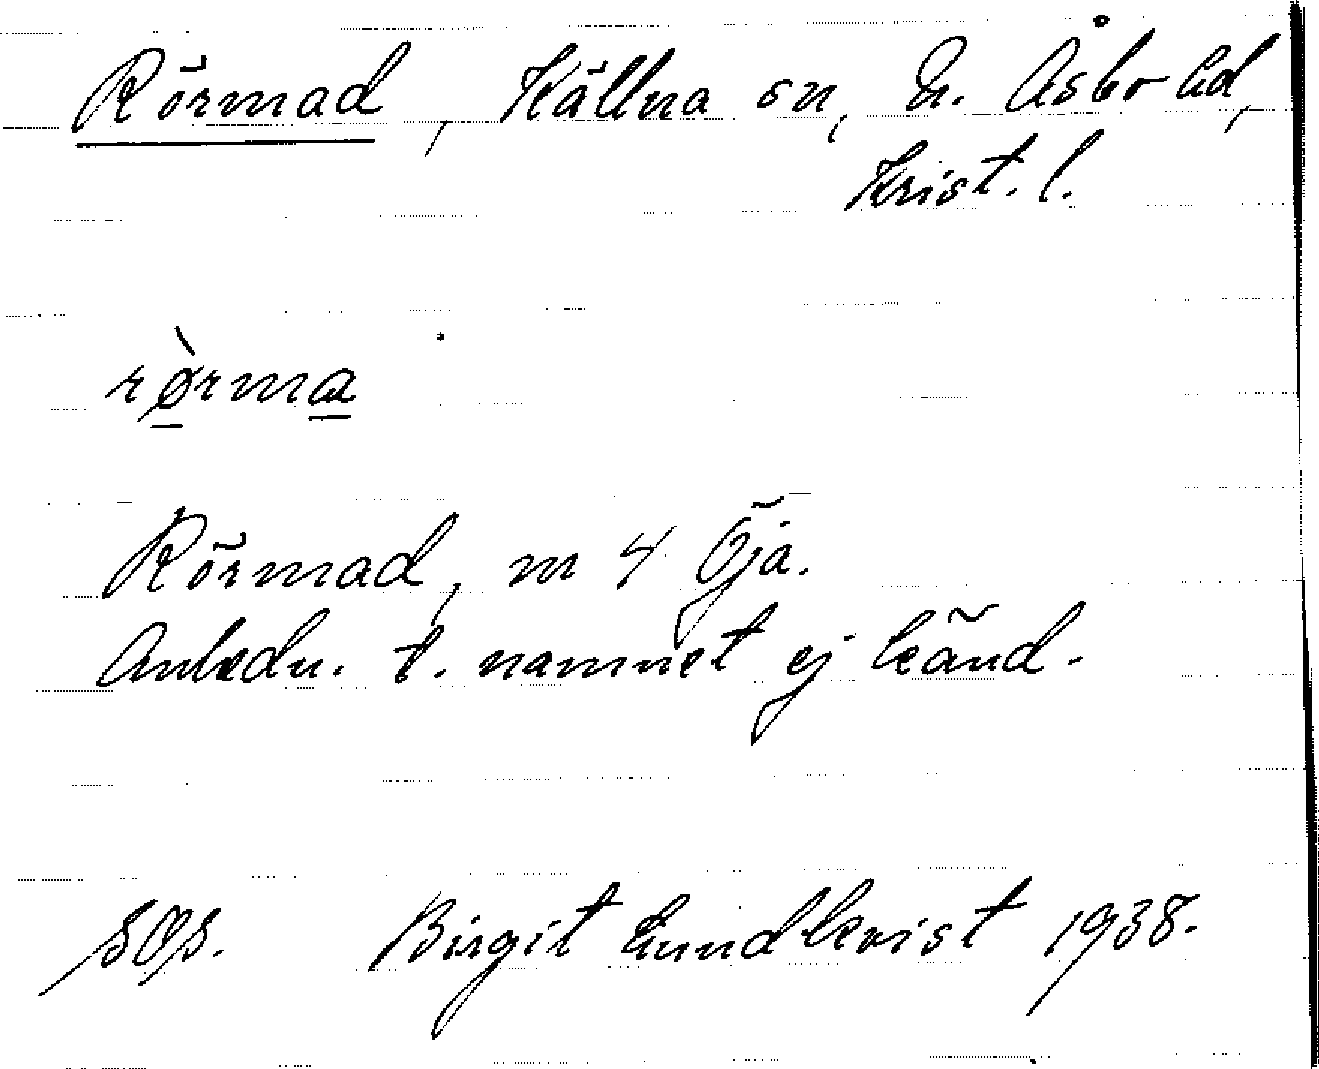 Rörmad, Källna sn, N. Åsbo hd,
Krist. l.
rø̀rma
Rörmad, m 4 Öja.
Anledn. t. namnet ej känd.
Birgit Lundkvist 1938.